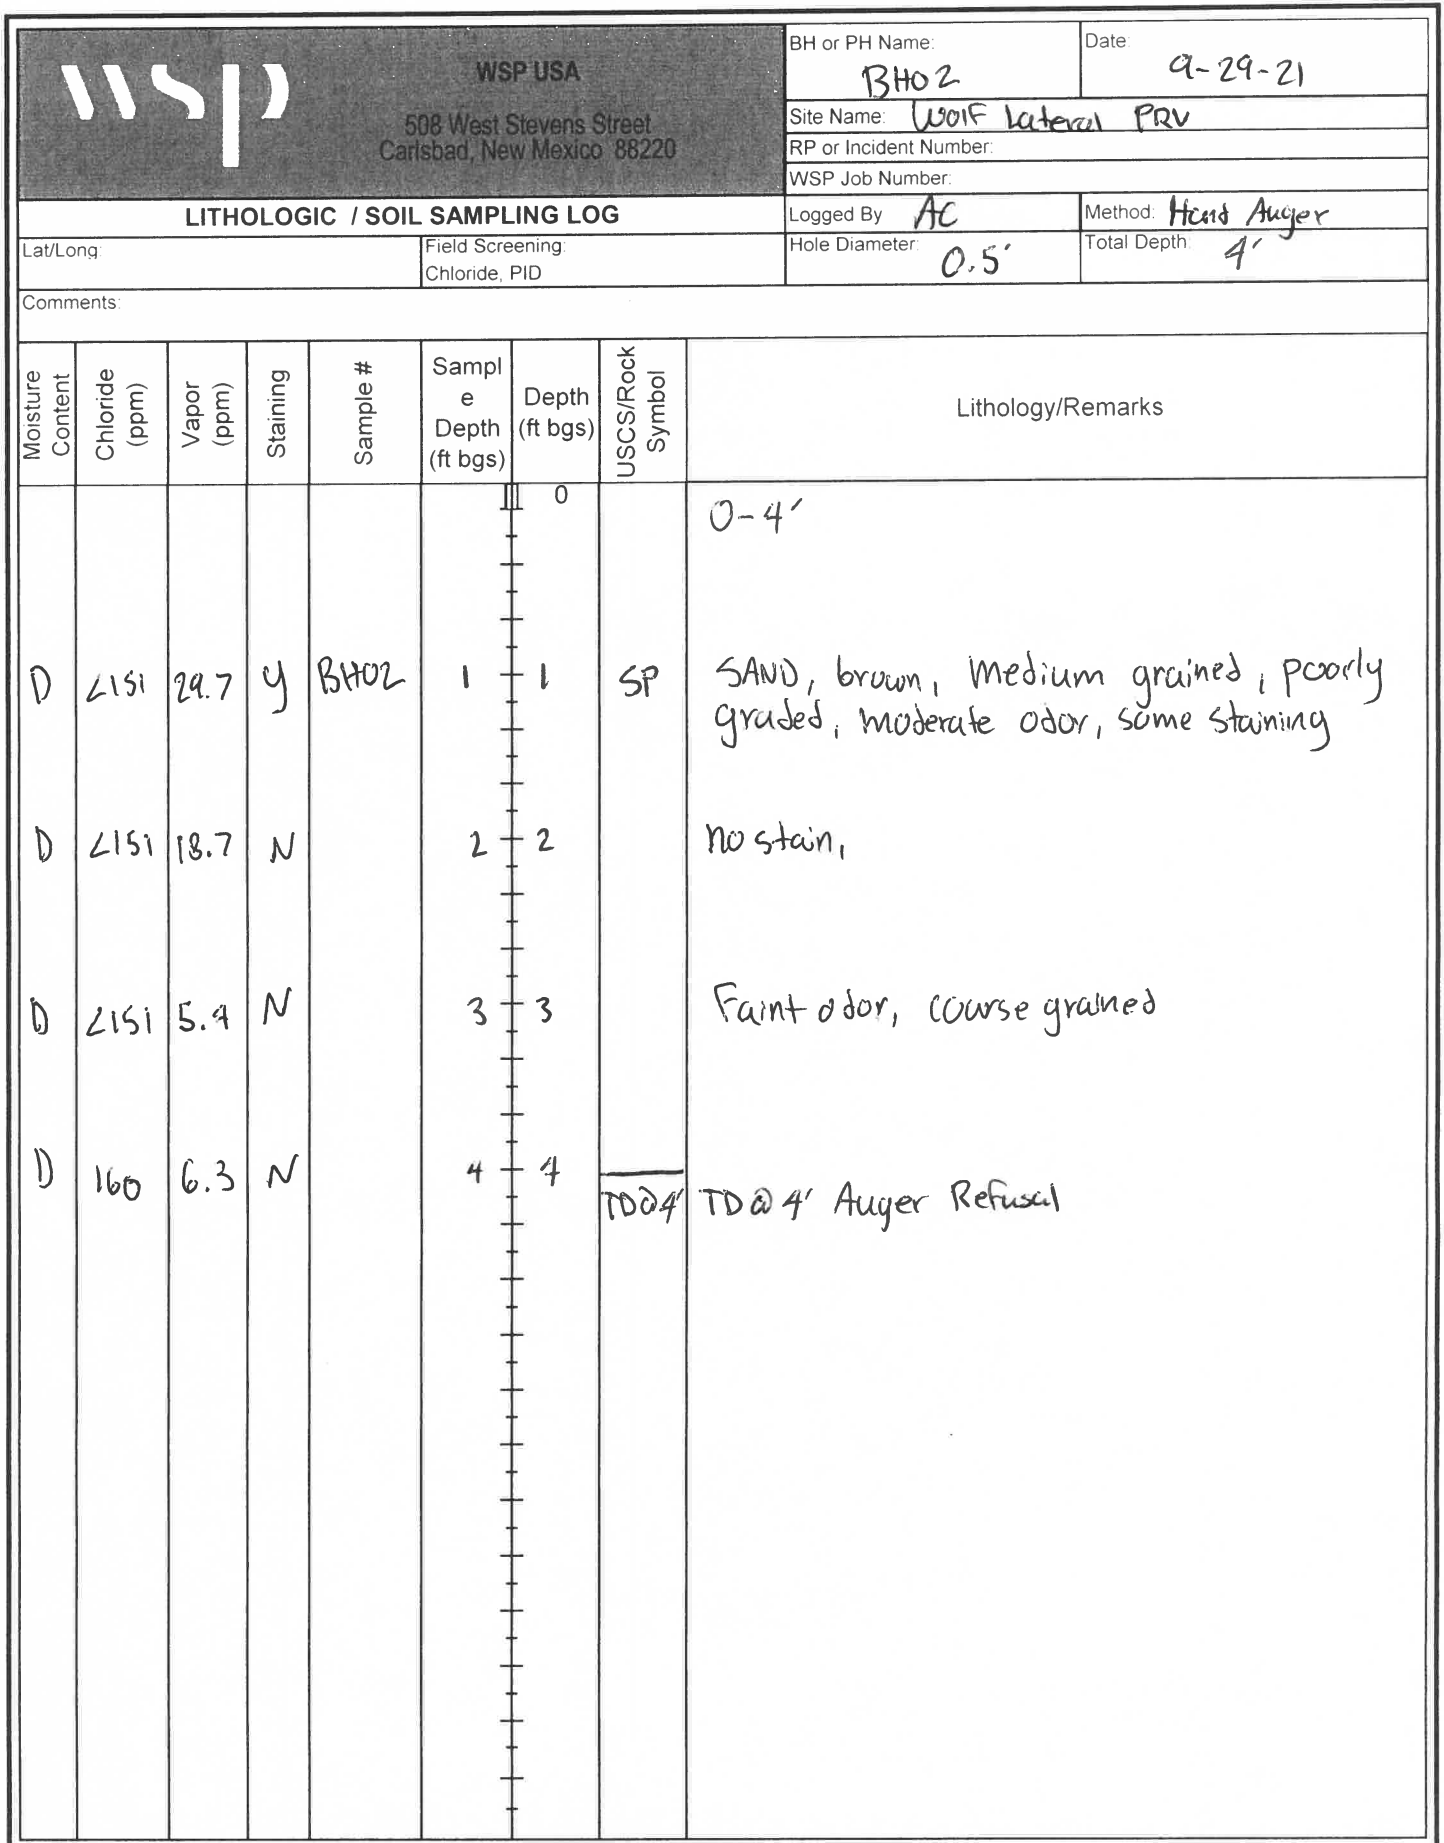 wsp
WSP USA
508 West Stevens Street
Carlsbad, New Mexico 88220
BH or PH Name:
BH02
Date:
9-29-21
Site Name: Wolf Lateral PRV
RP or Incident Number:
WSP Job Number:
LITHOLOGIC / SOIL SAMPLING LOG
Logged By AC
Method: Hand Auger
Lat/Long:
Field Screening:
Chloride, PID
Hole Diameter: 0.5'
Total Depth: 4'
Comments:
Moisture
Content
Chloride
(ppm)
Vapor
(ppm)
Staining
Sample #
Sampl
e
Depth
(ft bgs)
Depth
(ft bgs)
USCS/Rock
Symbol
Lithology/Remarks
0
0-4'
D <151 29.7 y BH02 1 1 SP SAND, brown, medium grained, poorly
graded, moderate odor, some staining
D <151 18.7 N 2 2 no stain,
D <151 5.4 N 3 3 Faint odor, course grained
D 160 6.3 N 4 4
TD@4' TD @ 4' Auger Refusal